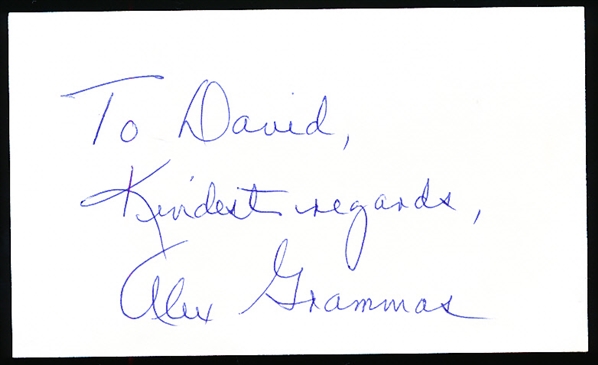 To David,
Kindest regards,
Alex Grammas